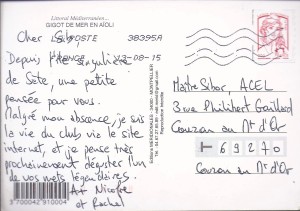 Littoral Méditerranéen...
GIGOT DE MER EN AÏOLI
Cher Sibor,
LA POSTE 38395A
FRANCE -08-15
Depuis l'île singulière
de Sète, une petite
pensée par vous.
Malgré mon absence, je suis
la vie du club via le site
internet, et je pense très
prochainement déguster l'un
de vos mets légendaires.
A+ Nicole
et Rachel
3 700042 910004
Maître Sibor, ACEL
3 rue Philibert Gaillard
Couzon au Mt d'Or
69270
Couzon au Mt d'Or